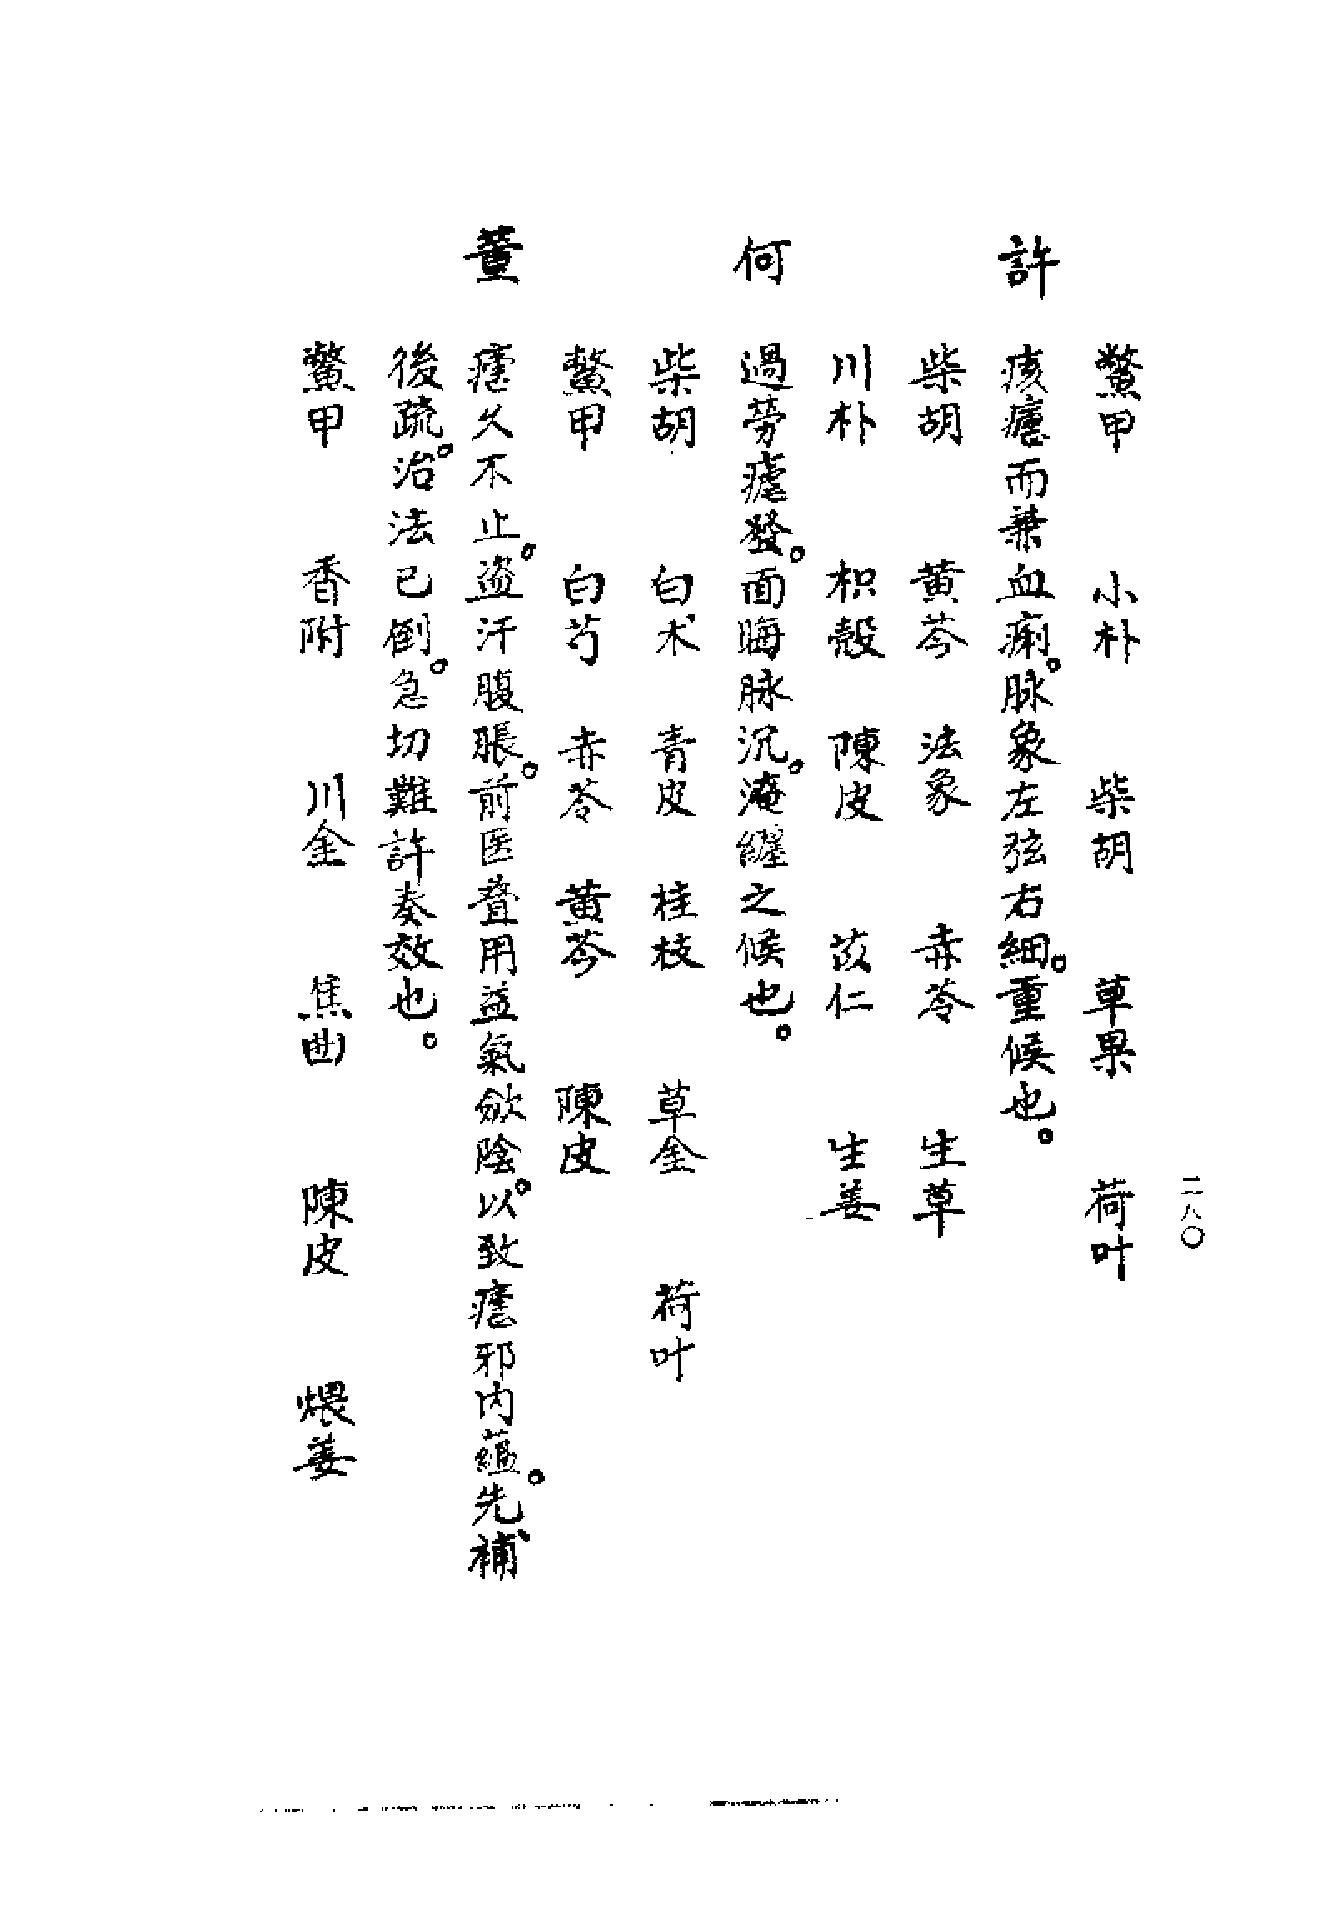 二八〇
鳖甲 小朴 柴胡 草果 荷叶
許 痎瘧而兼血痢。脉象左弦右細。重候也。
柴胡 黄芩 法象 赤苓 生草
川朴 枳殼 陳皮 苡仁 生姜
何 過劳瘧發。面晦脉沉。淹纏之候也。
柴胡 白术 青皮 桂枝 草金 荷叶
鳖甲 白芍 赤苓 黄芩 陳皮
董 瘧久不止。盗汗腹脹。前医叠用益氣歛陰。以致瘧邪内蕴。先補
後疏。治法已倒。急切難許奏效也。
鳖甲 香附 川金 焦曲 陳皮 煨姜